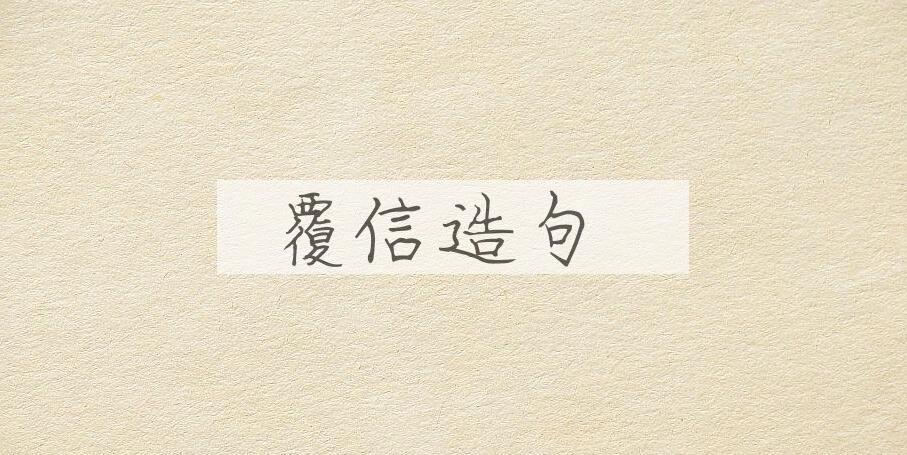 覆信造句